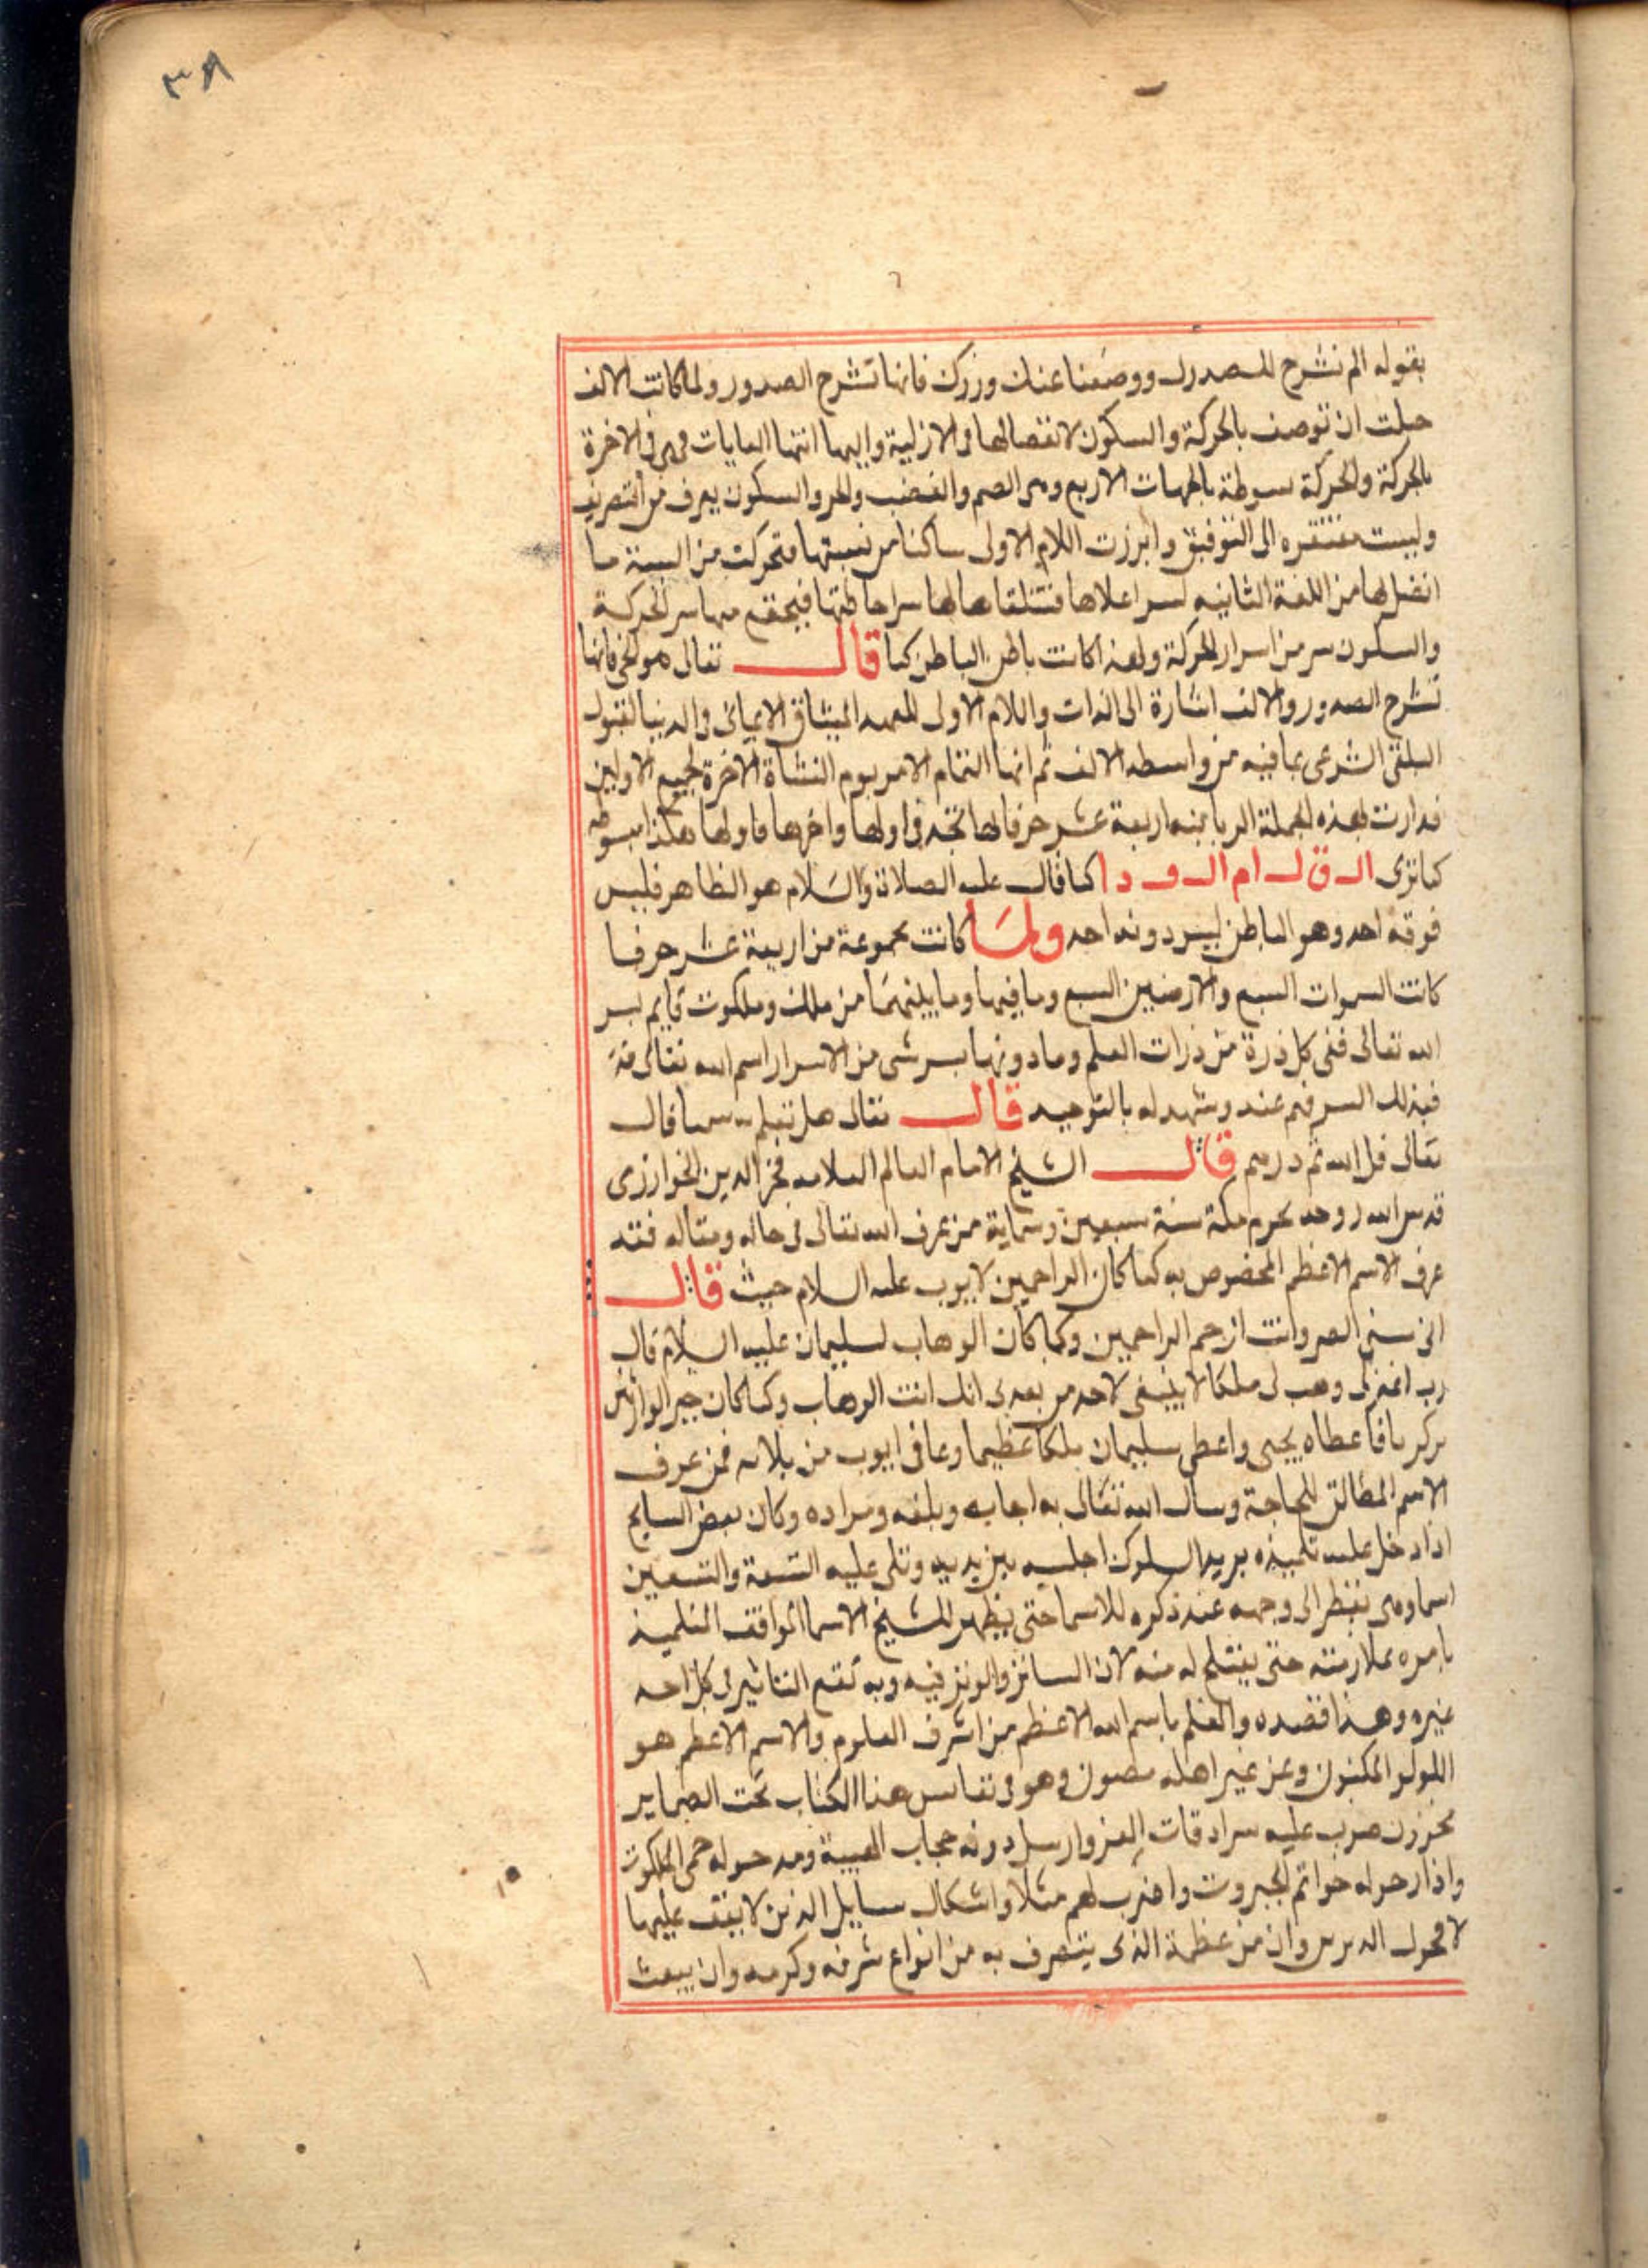 ٣٨
بقوله الم نشرح لك صدرك ووضعنا عنك وزرك فانها تشرح الصدور ولما كانت الالف
جلت ان توصف بالحركة والسكون لانفصالها فى الازلية واليها انتها الغايات فهى فى الاخرة
بالحركة والحركة بالجهات الاربع وهى الضم والسكون يعرف من التصريف
وليست مفتقره الى التوفيق وابرزت اللام الاولى ساكنا من نسبتها فتحركت من النسبة ما
اتصل بها من اللفة الثانيه لسر اعلاها فتتلقاها لها سر احاطتها فيجتمع منها سر الحركة
والسكون سر من اسرار الحركة ولهذا كانت باطن الباطن كما قال تعالى هو الحى فانها
تشرح الصدور والالف اشارة الى الذات واللام الاولى للعهد الميثاق الايمانى والدنيا لقبول
التلقى الشرعى بما فيه من واسطه الالف ثم انها التمام الامر يوم النشاة الاخرة لجميع الاولين
فدارت بهذه الجملة الربانيه اربعة عشر حرفا لها تجد فى اولها واخرها فاولها هكذا مبسوطه
كما ترى ال ق ل ام ال و د ا كما قال عليه الصلاة والسلام هو الظاهر فليس
فوقه احد وهو الباطن ليس دونه احد ولما كانت مجموعة من اربعة عشر حرفا
كانت السموات السبع والارضين السبع وما فيها وما بينهما من ملك وملكوت قايم بسر
الله تعالى ففى كل ذرة من ذرات العلم وما دونها بسر شى من الاسرار اسم الله تعالى فيه
فبذلك السر فهم عنه وشهد له بالتوحيد قال تعالى هل تعلم له سميا قال
تعالى قل الله ثم ذرهم قال الشيخ الامام العالم العلامه فخر الدين الخوارزمى
قدس الله روحه بحرم مكة سنة سبعين وستماية من عرف الله تعالى فى حاله ومقاله فقد
عرف الاسم الاعظم المخصوص به كما كان الراحمين لايوب عليه السلام حيث قال
انى مسنى الضر وانت ارحم الراحمين وكما كان الوهاب لسليمان عليه السلام قال
رب اغفر لى وهب لى ملكا لا ينبغى لاحد من بعدى انك انت الوهاب وكما كان خير الوارثين
لزكريا فاعطاه يحيى واعطى سليمان ملكا عظيما وعافى ايوب من بلائه فمن عرف
الاسم المطابق للحاجة وسال الله تعالى به اجابه وبلغه ومراده وكان بعض السايح
اذا دخل عليه تلميذه يريد السلوك اجلسه بين يديه وتلى عليه التسعة والتسعين
اسما وهى ينظر الى وجهه عند ذكره للاسما حتى يظهر للشيخ الاسما الموافقه التلميذ
يامره بملازمته حتى يفتتح له منه لان السائر والوتر فيه وبه تقع التاثير فى كل احد
غيره وهذا قصده والعلم باسم الله الاعظم من اشرف العلوم والاسم الاعظم هو
اللولو المكنون وعن غير اهله مصون وهو فى نفايس هذا الكتاب تحت الضماير
مخزون ضرب عليه سرادقات العز وارسل دونه حجاب الهيبة ومد حوله حمى الملكوت
وادار حوله خواتم الجبروت واضرب لهم مثلا واشكال مسايل الذين لا يقف عليها
لا فحول الدبرس وان من عظمة الذى يتصرف به من انواع شرفه وكرمه وان يبعث